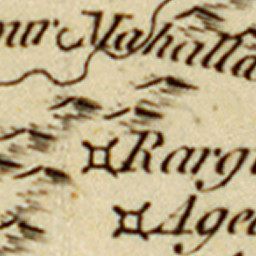 our Mahalla
Rargu
Aged